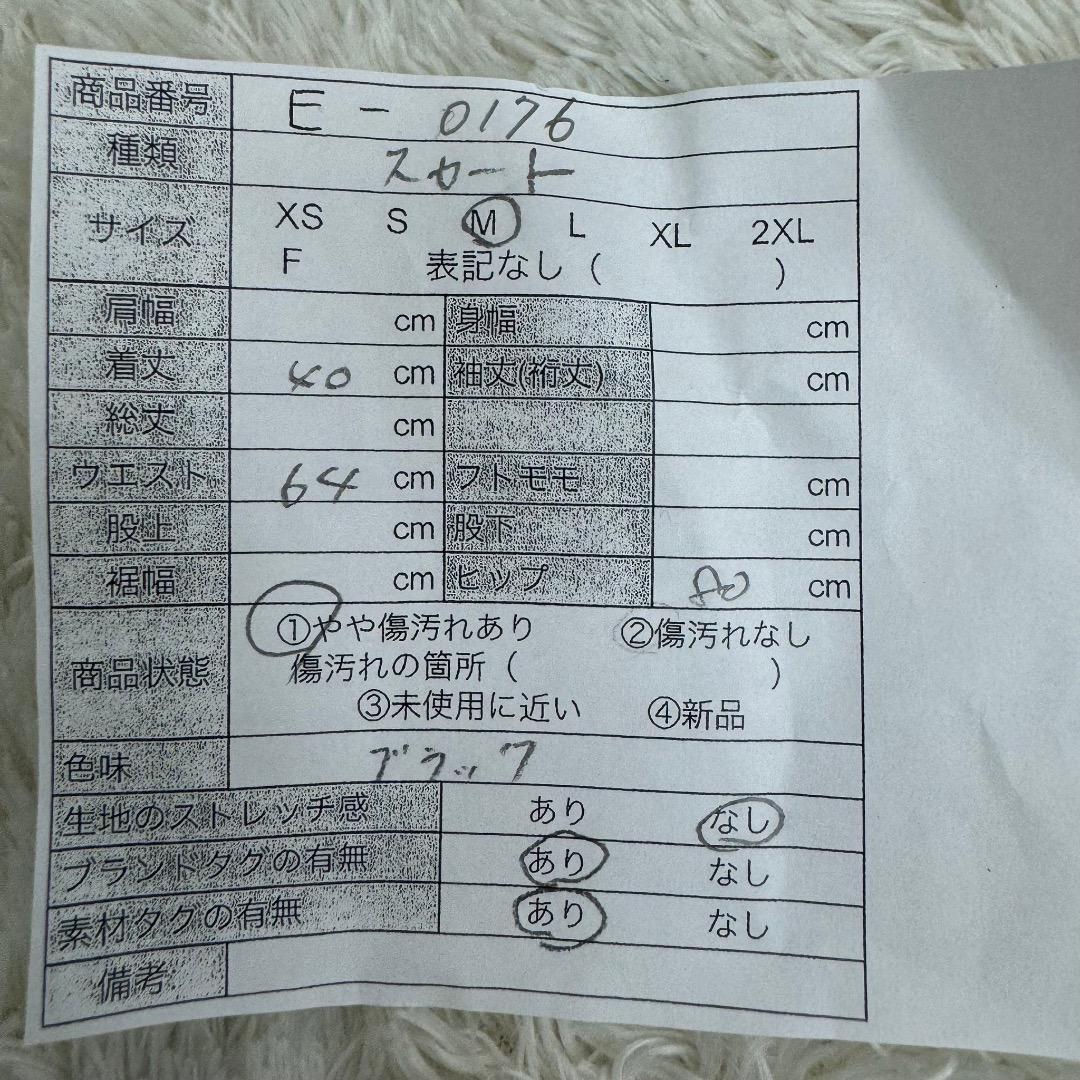 商品番号 E - 0176
種類 スカート
サイズ XS S M L XL 2XL
F 表記なし ( )
肩幅 cm 身幅 cm
着丈 40 cm 袖丈(裄丈) cm
総丈 cm
ウエスト 64 cm フトモモ cm
股上 cm 股下 cm
裾幅 cm ヒップ 80 cm
商品状態 ①やや傷汚れあり ②傷汚れなし
傷汚れの箇所 ( )
③未使用に近い ④新品
色味 ブラック
生地のストレッチ感 あり なし
ブランドタグの有無 あり なし
素材タグの有無 あり なし
備考